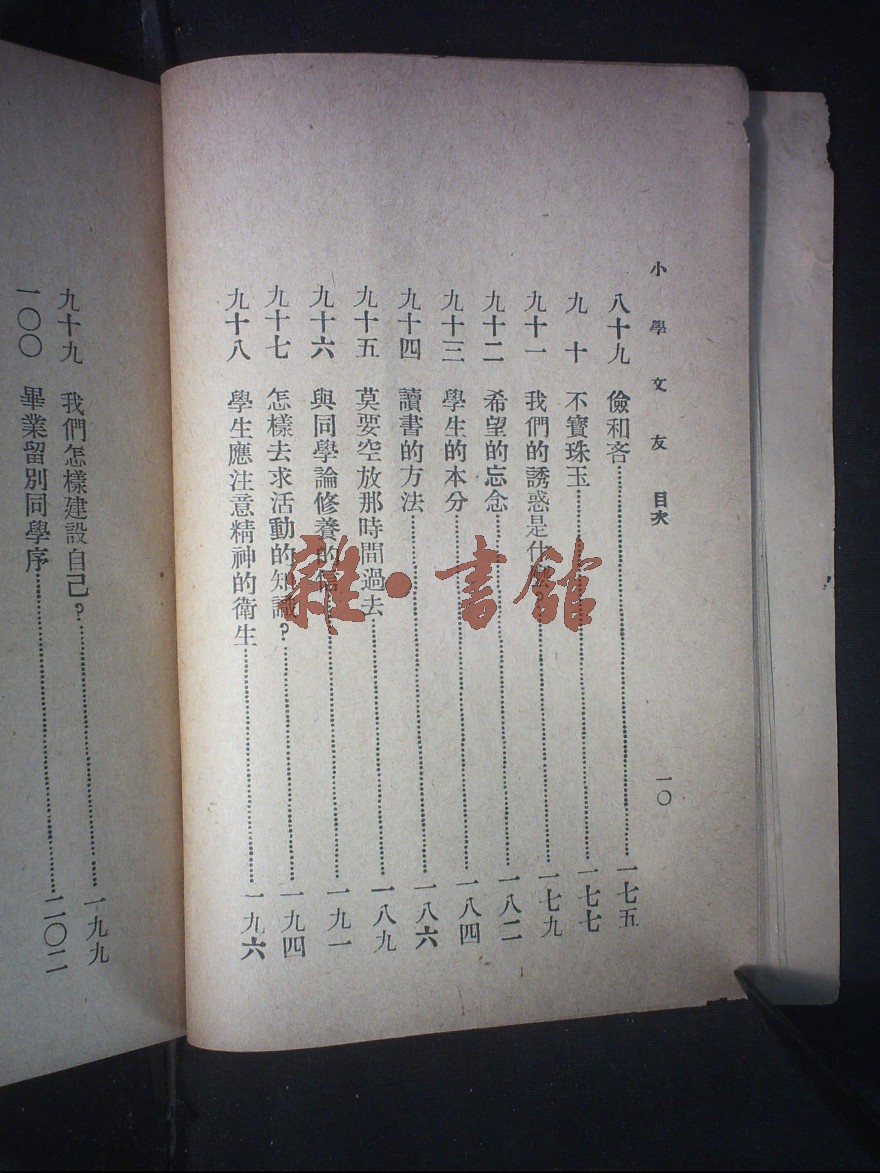 小學文友 目次
一〇
八十九 儉和吝……一七五
九十 不寶珠玉……一七七
九十一 我們的誘惑是什麼？……一七九
九十二 希望的忘念……一八二
九十三 學生的本分……一八四
九十四 讀書的方法……一八六
九十五 莫要空放那時間過去……一八九
九十六 與同學論修養的信……一九一
九十七 怎樣去求活動的知識？……一九四
九十八 學生應注意精神的衛生……一九六
九十九 我們怎樣建設自己？……一九九
一〇〇 畢業留別同學序……二〇二
雜·書館